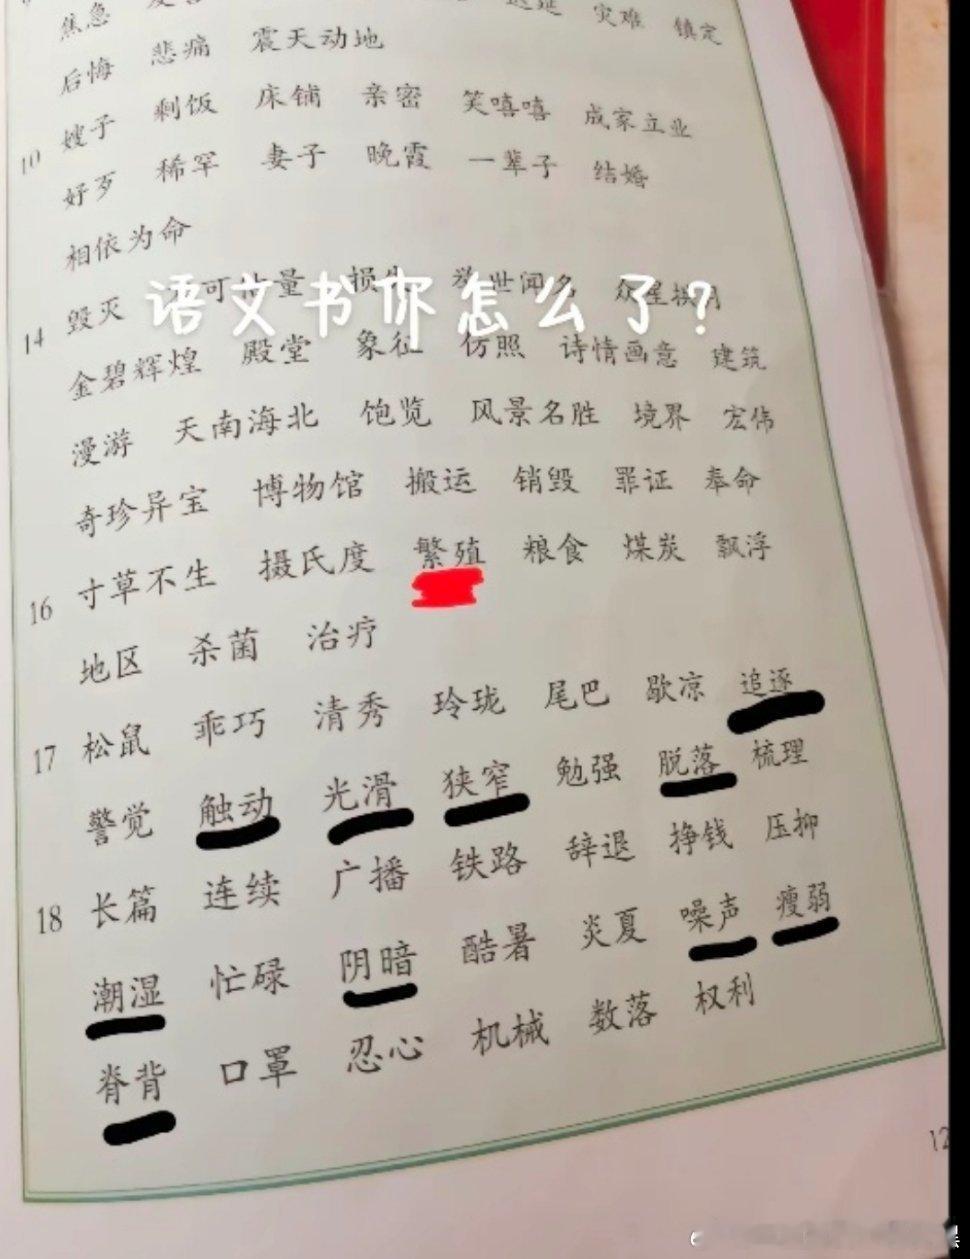 焦急 灾难 镇定
后悔 悲痛 震天动地
10 嫂子 剩饭 床铺 亲密 笑嘻嘻 成家立业
好歹 稀罕 妻子 晚霞 一辈子 结婚
相依为命
语文书你怎么了?
14 毁灭 可 量 举世闻名
金碧辉煌 殿堂 象征 仿照 诗情画意 建筑
漫游 天南海北 饱览 风景名胜 境界 宏伟
奇珍异宝 博物馆 搬运 销毁 罪证 奉命
16 寸草不生 摄氏度 繁殖 粮食 煤炭 飘浮
地区 杀菌 治疗
17 松鼠 乖巧 清秀 玲珑 尾巴 歇凉 追逐
警觉 触动 光滑 狭窄 勉强 脱落 梳理
18 长篇 连续 广播 铁路 辞退 挣钱 压抑
潮湿 忙碌 阴暗 酷暑 炎夏 噪声 瘦弱
脊背 口罩 忍心 机械 数落 权利
12